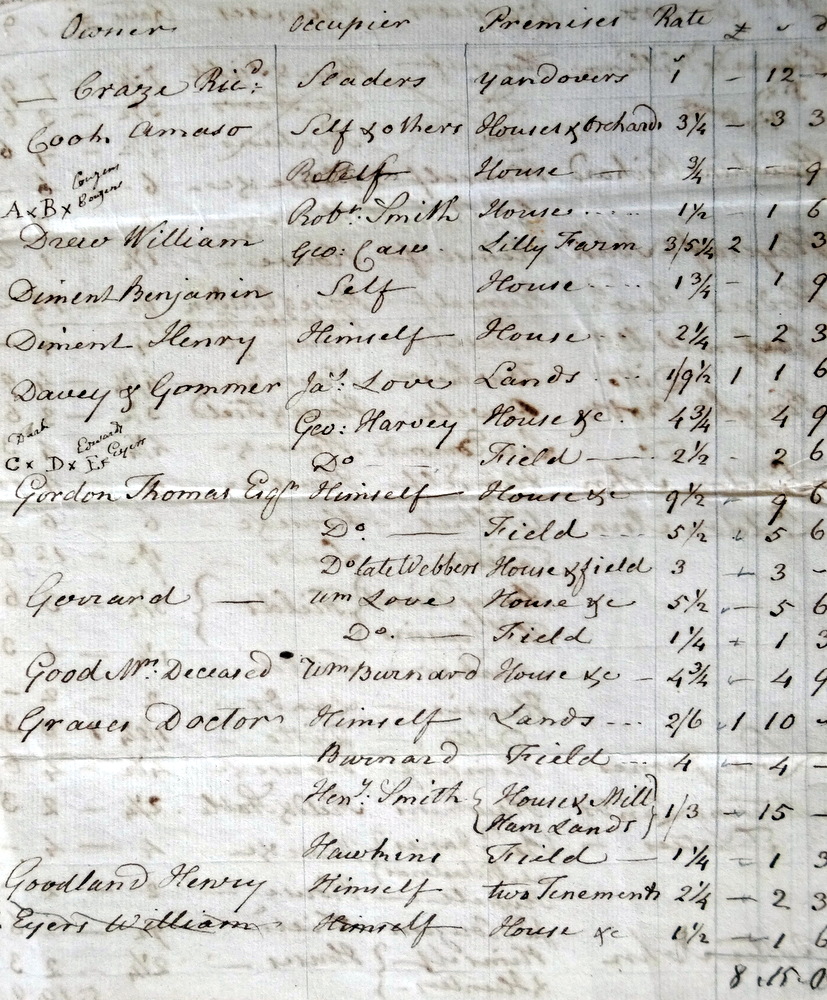 Owner Occupier Premises Rate £ s d
— Craze Ricd: Seaders Yandovers 1s — 12 —
Cook Amaso Self & others Houses & Orchards 3 1/4 — 3 3
Self House — 3/4 — — 9
Couzens
A x B x Couzens Robt. Smith House ..... 1 1/2 — 1 6
Drew William Geo: Case. Lilly Farm 3/5 1/4 2 1 3
Diment Benjamin Self House .... 1 3/4 — 1 9
Diment Henry Himself House .. 2 1/4 — 2 3
Davey & Gommer Jas: Love Lands ... 1/9 1/2 1 1 6
Geo: Harvey House &c. 4 3/4 — 4 9
Dark Edward
C x D x E x Eyers Do — Field — 2 1/2 — 2 6
Gordon Thomas Esqr Himself House &c 9 1/2 - 9 6
Do. — Field .... 5 1/2 - 5 6
Do late Webbers House & field 3 - 3 -
Goverard — } Wm Love House &c 5 1/2 - 5 6
Do. — Field 1 1/4 - 1 3
Good Mr. Deceased Wm Burnard House &c — 4 3/4 - 4 9
Graves Doctor Himself Lands --- 2/6 1 10 -
Burnard Field ... 4 — 4 —
Heny. Smith { House & Mill
Ham Lands } 1/3 — 15 —
Hawkins Field — 1 1/4 — 1 3
Goodland Henry Himself two Tenements 2 1/4 — 2 3
Eyers William Himself House &c 1 1/2 — 1 6
8 . 15 . 0